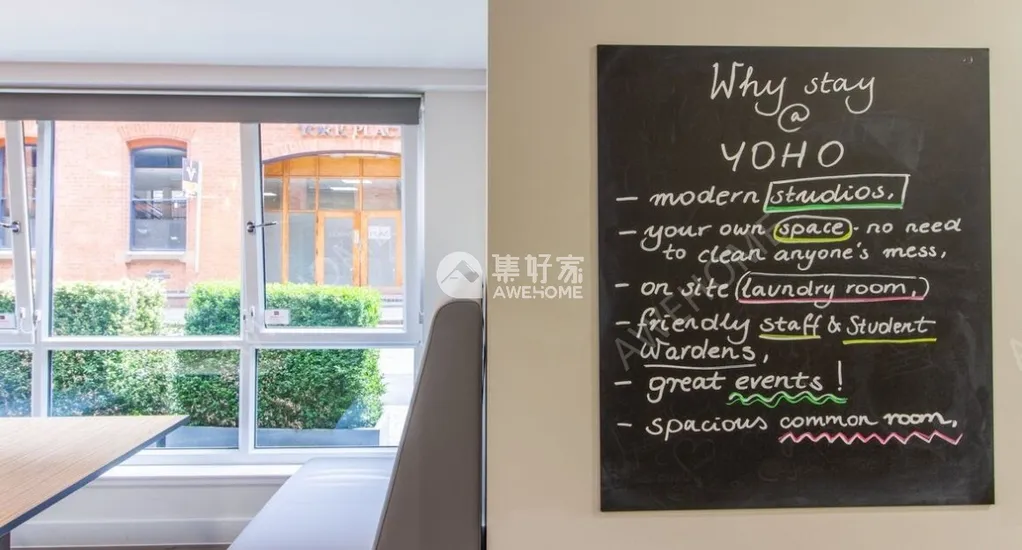 YORK PLAC
集好家
AWEHOME
Why stay
@
YOHO
- modern studios.
- your own space - no need
to clean anyone's mess,
- on site (laundry room,)
- friendly staff & Student
Wardens,
- great events!
- spacious common room,
AWEHOME
AWEHOME